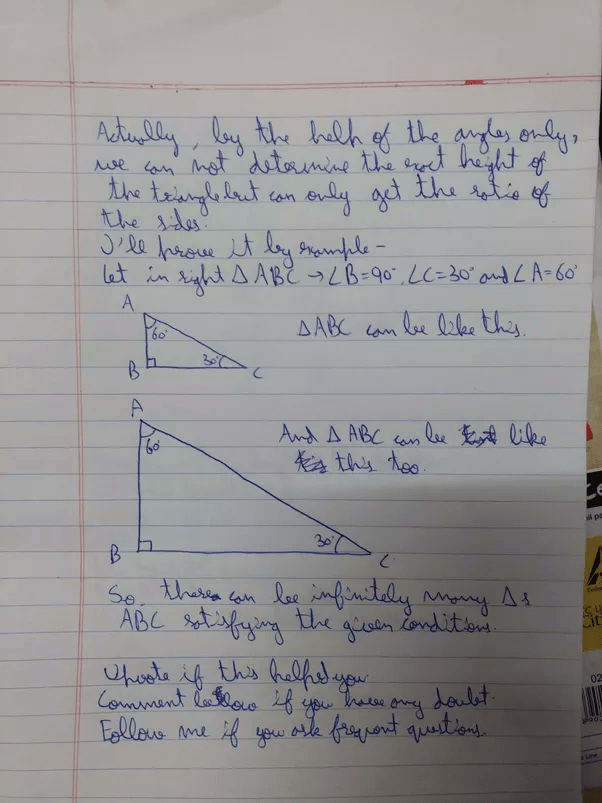 Actually, by the help of the angles only,
we can not determine the exact height of
the triangle but can only get the ratio of
the sides.
I'll prove it by example -
Let in right △ ABC → ∠B=90°, ∠C=30° and ∠A=60°
A
60°
△ABC can be like this.
B
30°
C
A
60°
And △ ABC can be like
this too.
B
30°
C
So, there can be infinitely many △s
ABC satisfying the given conditions.
Upvote if this helped you.
Comment below if you have any doubt.
Follow me if you ask frequent questions.
02